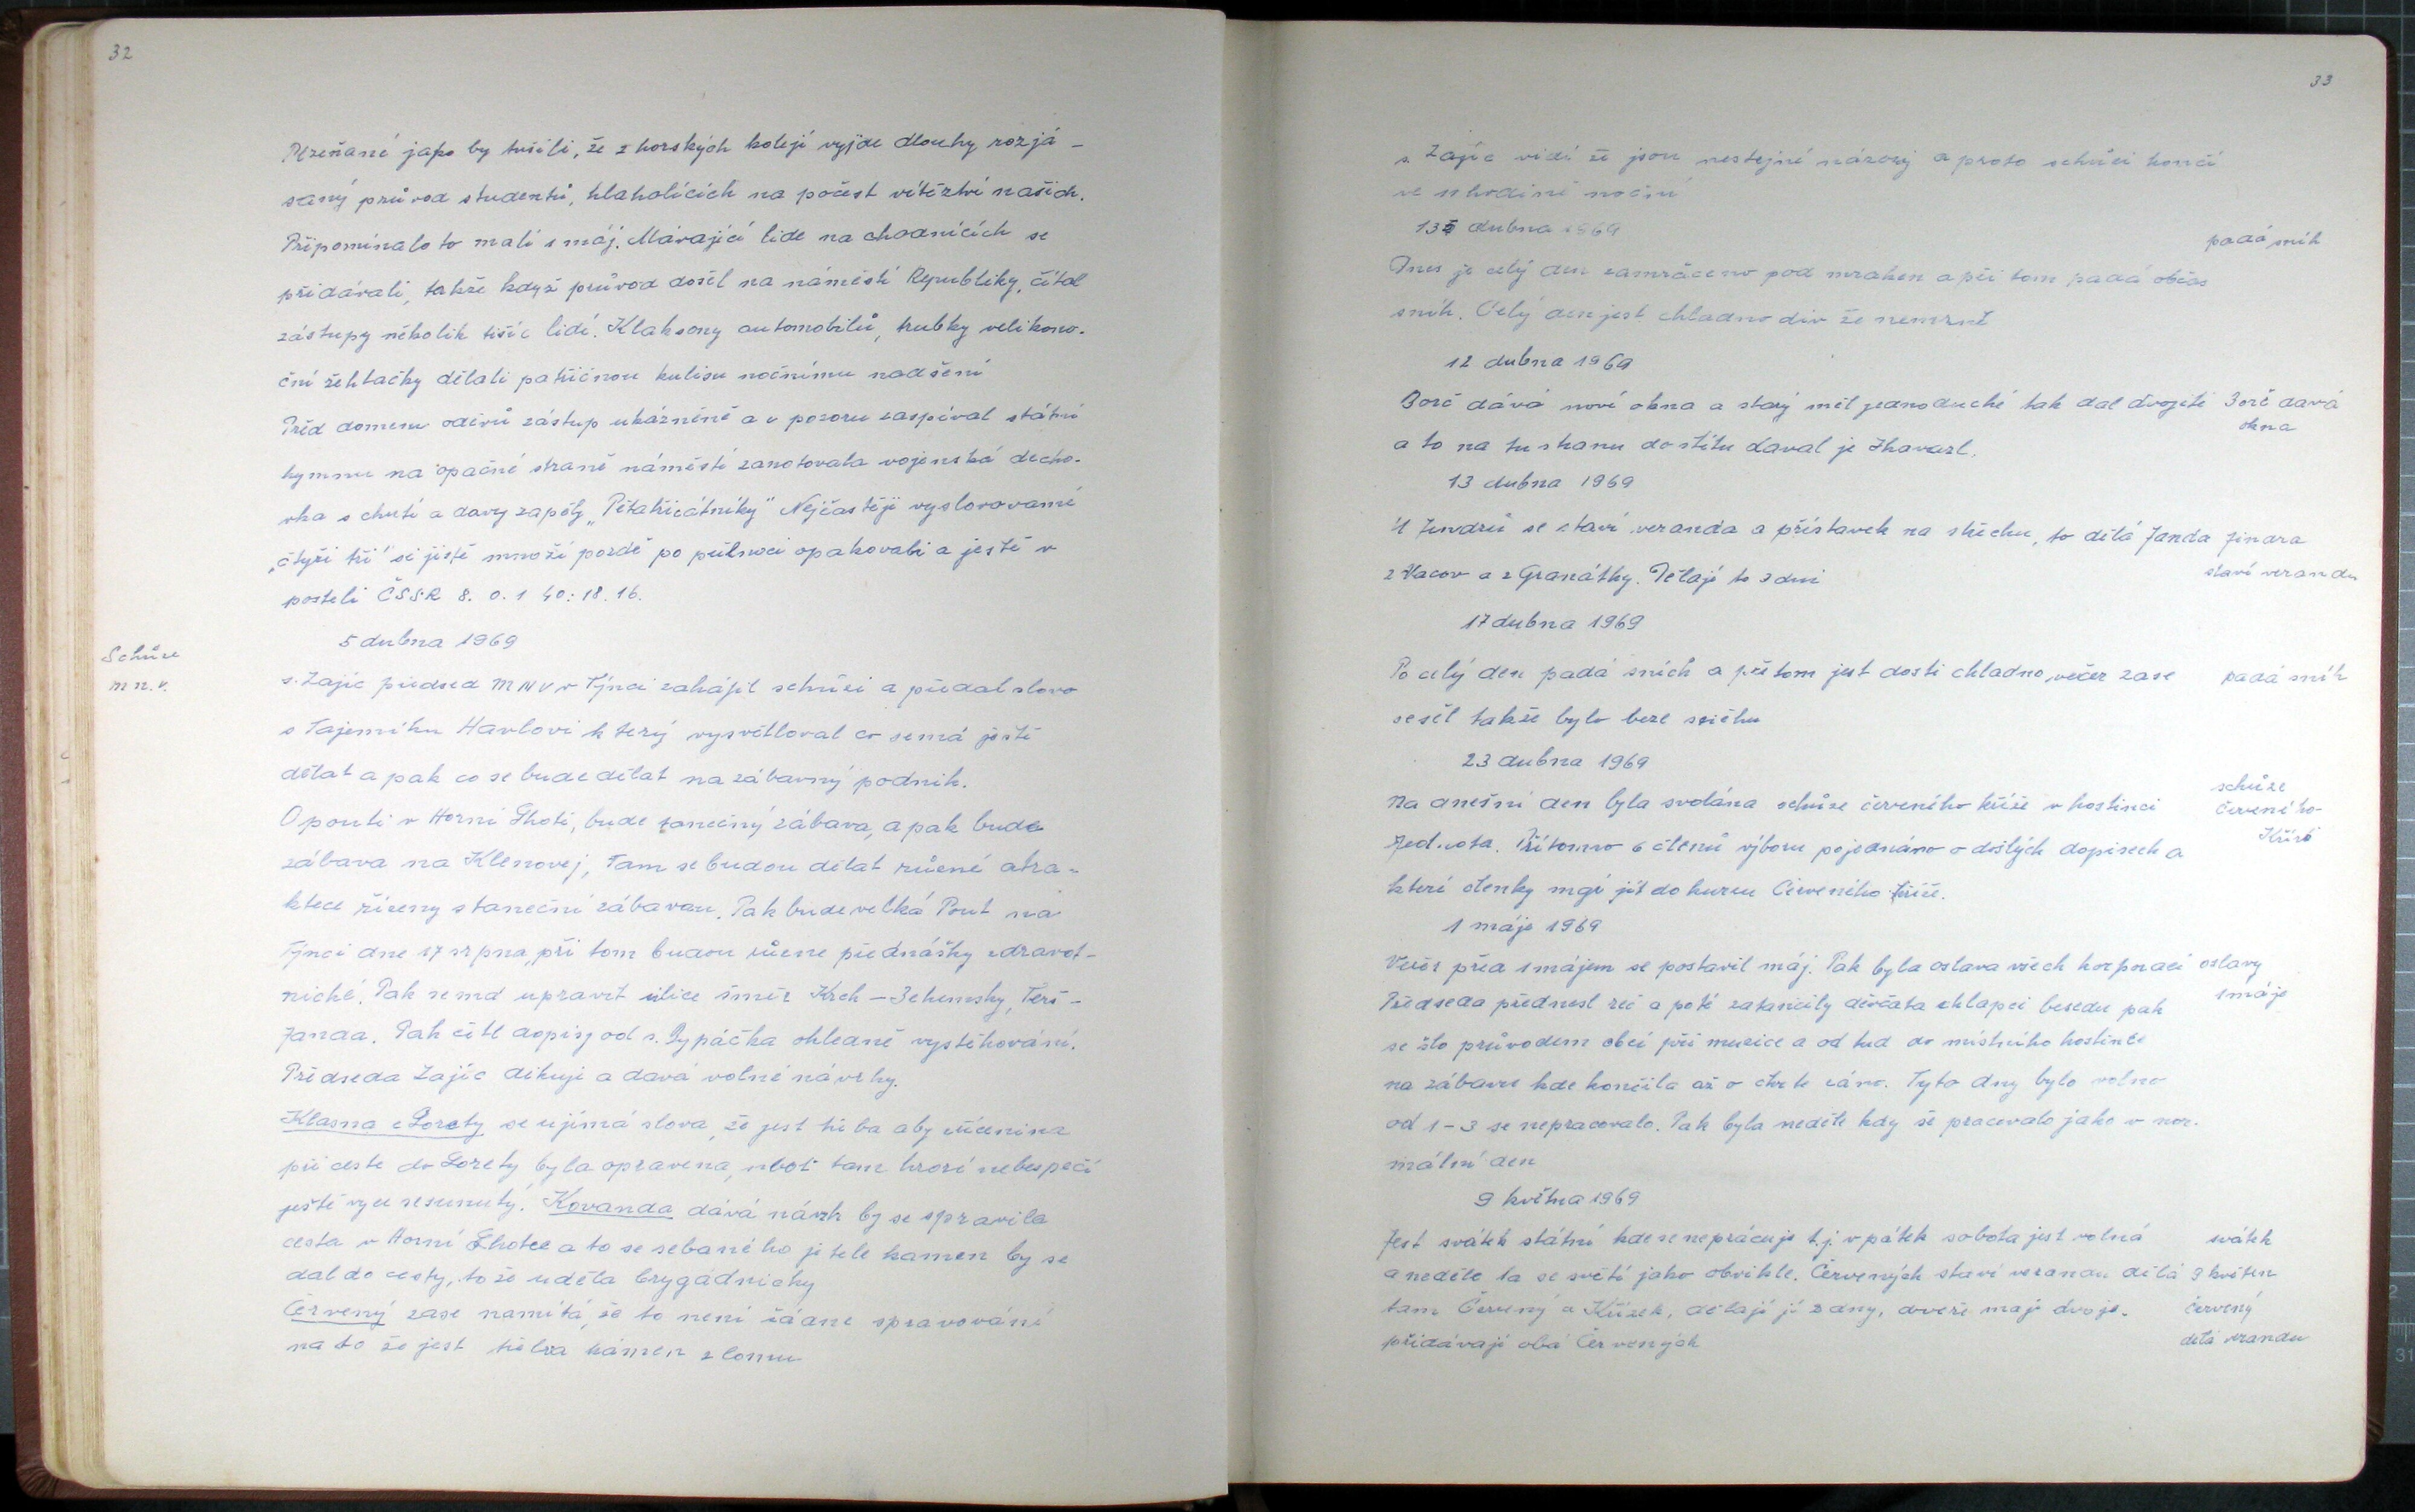 32
Plzeňané jako by tušili, že z horských kolejí vyjde dlouhy rozjá-
saný průvod studentů, hlaholících na počest vítěztví našich.
Připomínalo to malí 1 máj. Mávající lide na chodnících se
přidávali, takže když průvod došel na náměstí Republiky, čítal
zástupy několik tisíc lidí. Klaksony automobilů, trubky velikono-
ční žehtačky dělali patřičnou kulisu nočnímu nadšení
Před domem oděvů zástup ukázněně a v pozoru zaspíval státní
hymnu na opačné straně náměstí zanotovala vojenská decho-
vka s chutí a davy zapěly „Pětatřicátníky" Nejčastěji vyslovované
„čtyři tři" si jistě mnozí pozdě po půlnoci opakovali a jestě v
posteli ČSSR 8. 0. 1 40:18. 16.
5 dubna 1969
Schůze
m n. v.
s. Zajíc předsed MNV v Týnci zahájil schůzi a předal slovo
s Tajemíku Havlovi k terý vysvětloval co semá jestě
dělat a pak co se bude dělat na zábavný podnik.
O pouti v Horní Lhotě, bude tanečný zábava, a pak bude
zábava na Klenovej, Tam se budou dělat různé atra-
ktece řízeny s taneční zábavau. Pak bude velká Pout na
Týnci dne 17 srpna, při tom budou různe přednášky zdravot-
nické. Pak semá upravit ulice směr Krch-Behensky, Terš-
Janda. Pak četl dopisy od s. Rypáčka ohledně vystěhování.
Předseda Zajíc děkuje a dává volné návrhy.
Klasna z Lorety se ujímá slova, že jest třeba aby
při cestě do Lorety byla opravena, nboť tam hrozí nebespečí
jestě vyce sesunutý. Kovanda dává návrh by se spravila
cesta v Horní Lhotce a to se sebaného jetele kamen by se
dal do cesty, to že uděla brygádnicky
Červený zase namítá, že to není řádne spravování
na to že jest třeba kámen z lomu
33
s Zajíc vidí že jsou nestejné názory a proto schůzi končí
ve 11 hodině noční
13 dubna 1969
padá sníh
Dnes je celý den zamračeno pod mrakem a při tom padá občas
sníh. Celý den jest chladno div že nemrzne
12 dubna 1969
Borč dává nové okna a starý měl jednoduché tak dal dvojeté
Borč davá
okna
a to na tu stranu do štítu daval je Zhavazl.
13 dubna 1969
U Jindrů se staví veranda a přístavek na střechu, to dělá Janda
Jindra
staví verandu
z Vacov a z Granátky. Dělají to 3 dni
17 dubna 1969
Po celý den padá sních a při tom jest dosti chladno, večer zase
padá sníh
sešel takže bylo beze sněhu
23 dubna 1969
Na dnešní den byla svolána schůze červeného kříže v hostinci
schůze
červeného
Kříže
Jednota. Přítomno 6 členů výboru pojednáno o došlých dopisech a
kteří členky mají jít do kurzu Červeného kříže.
1 máje 1969
Večer před 1 májem se postavil máj. Pak byla oslava všech korporací
oslavy
1 máje
Předseda přednesl reč a poté zatančily děvčata chlapci besedu pak
se šlo průvodem obcí při muzice a od tud do místního hostince
na zábavu kde končila až o čtvrte ráno. Tyto dny bylo volno
od 1-3 se nepracovalo. Pak byla neděle kdy se pracovalo jako v nor-
mální den
9 května 1969
Jest svátek státní kde se neprácuje t.j. v pátek sobota jest volná
svátek
9 květen
a neděle ta se světí jako obvikle. Červených staví verandu dělá
tam Červený a Křízek, dělají jí 2 dny, dveře mají dvoje.
červený
dělá verandu
přidávají oba Červených